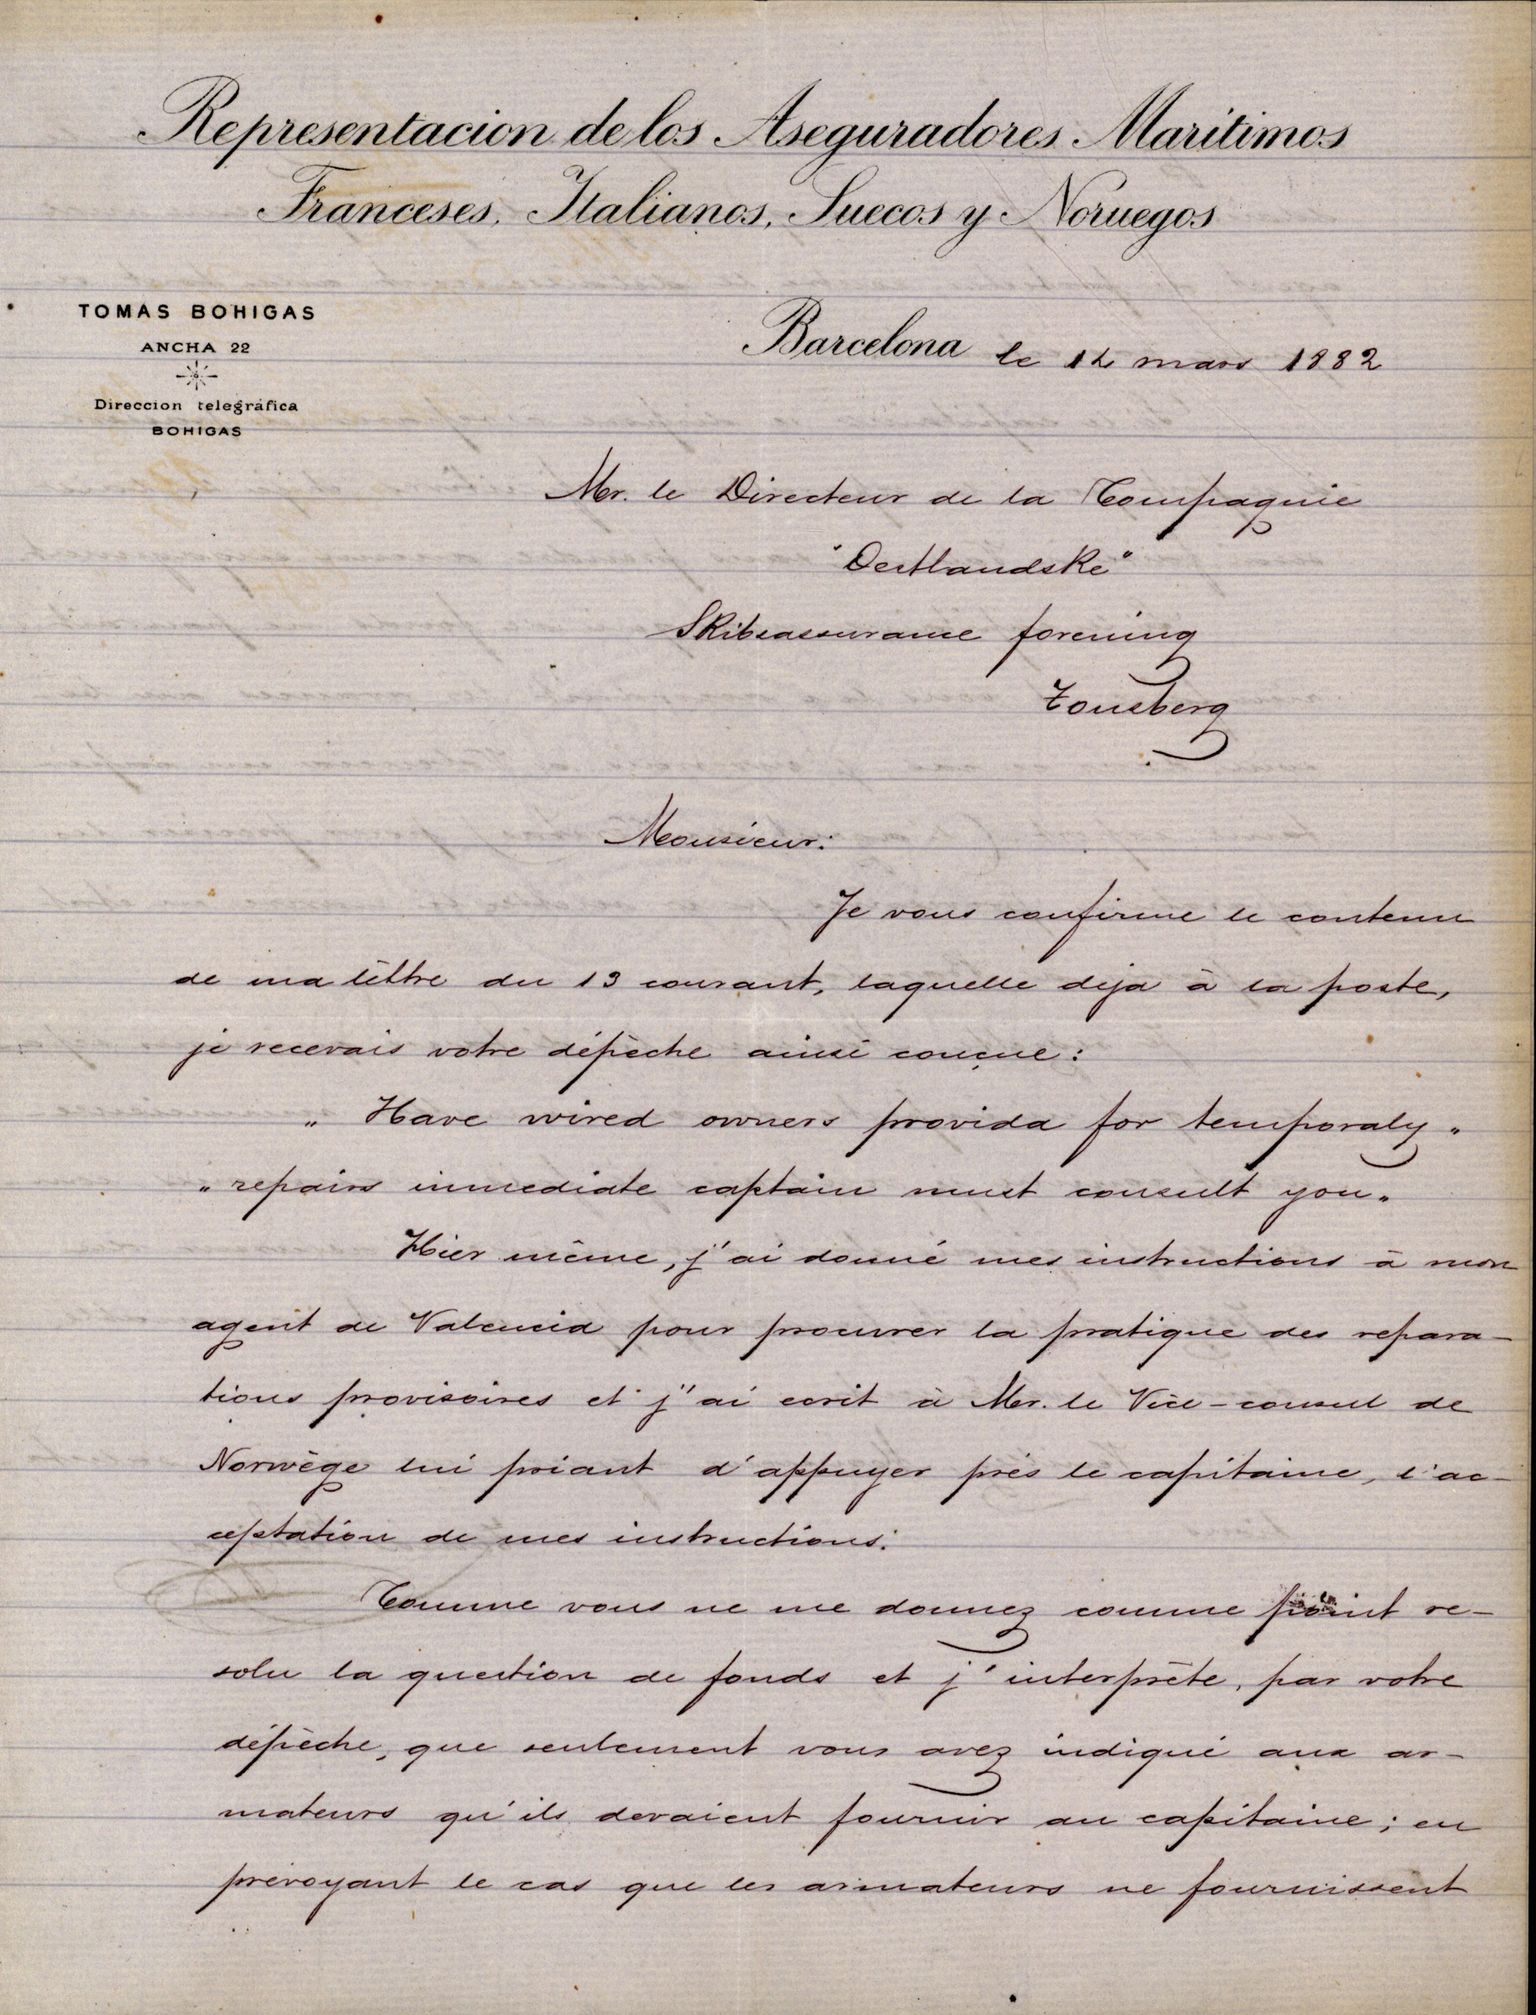 Representacion de los Aseguradores Maritimos
Franceses, Italianos, Suecos y Noruegos
TOMAS BOHIGAS
ANCHA 22
Direccion telegráfica
BOHIGAS
Barcelona le 14 mars 1882
Mr. le Directeur de la Compagnie
"Oestlandske"
Skibsassurance forening
Tonsberg
Monsieur:
Je vous confirme le contenu
de ma lèttre du 13 courant, laquelle deja à la poste,
je recevais votre dépèche ainsi conçue:
„ Have wired owners provida for temporaly „
„ repairs inmediate captain must consult you „
Hier même, j'ai donné mes instructions à mon
agent de Valencia pour procurer la pratique des repara-
tions provisoires et j'ai ecrit à Mr. le Vice-consul de
Norwège lui priant d'appuyer près le capitaine, l'ac-
ceptation de mes instructions.
Comme vous ne me donnez comme point re-
solu la question de fonds et j'interprète, par votre
dépèche, que seulement vous avez indiqué aux ar-
mateurs qu'ils devaient fournir au capitaine; en
prevoyant le cas que les armateurs ne fournissent